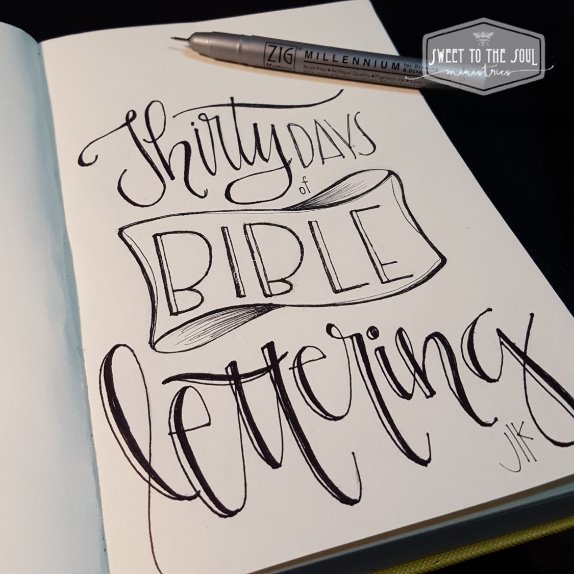 SWEET TO THE SOUL
ministries
ZIG MILLENNIUM
Thirty DAYS
of
BIBLE
lettering
JK